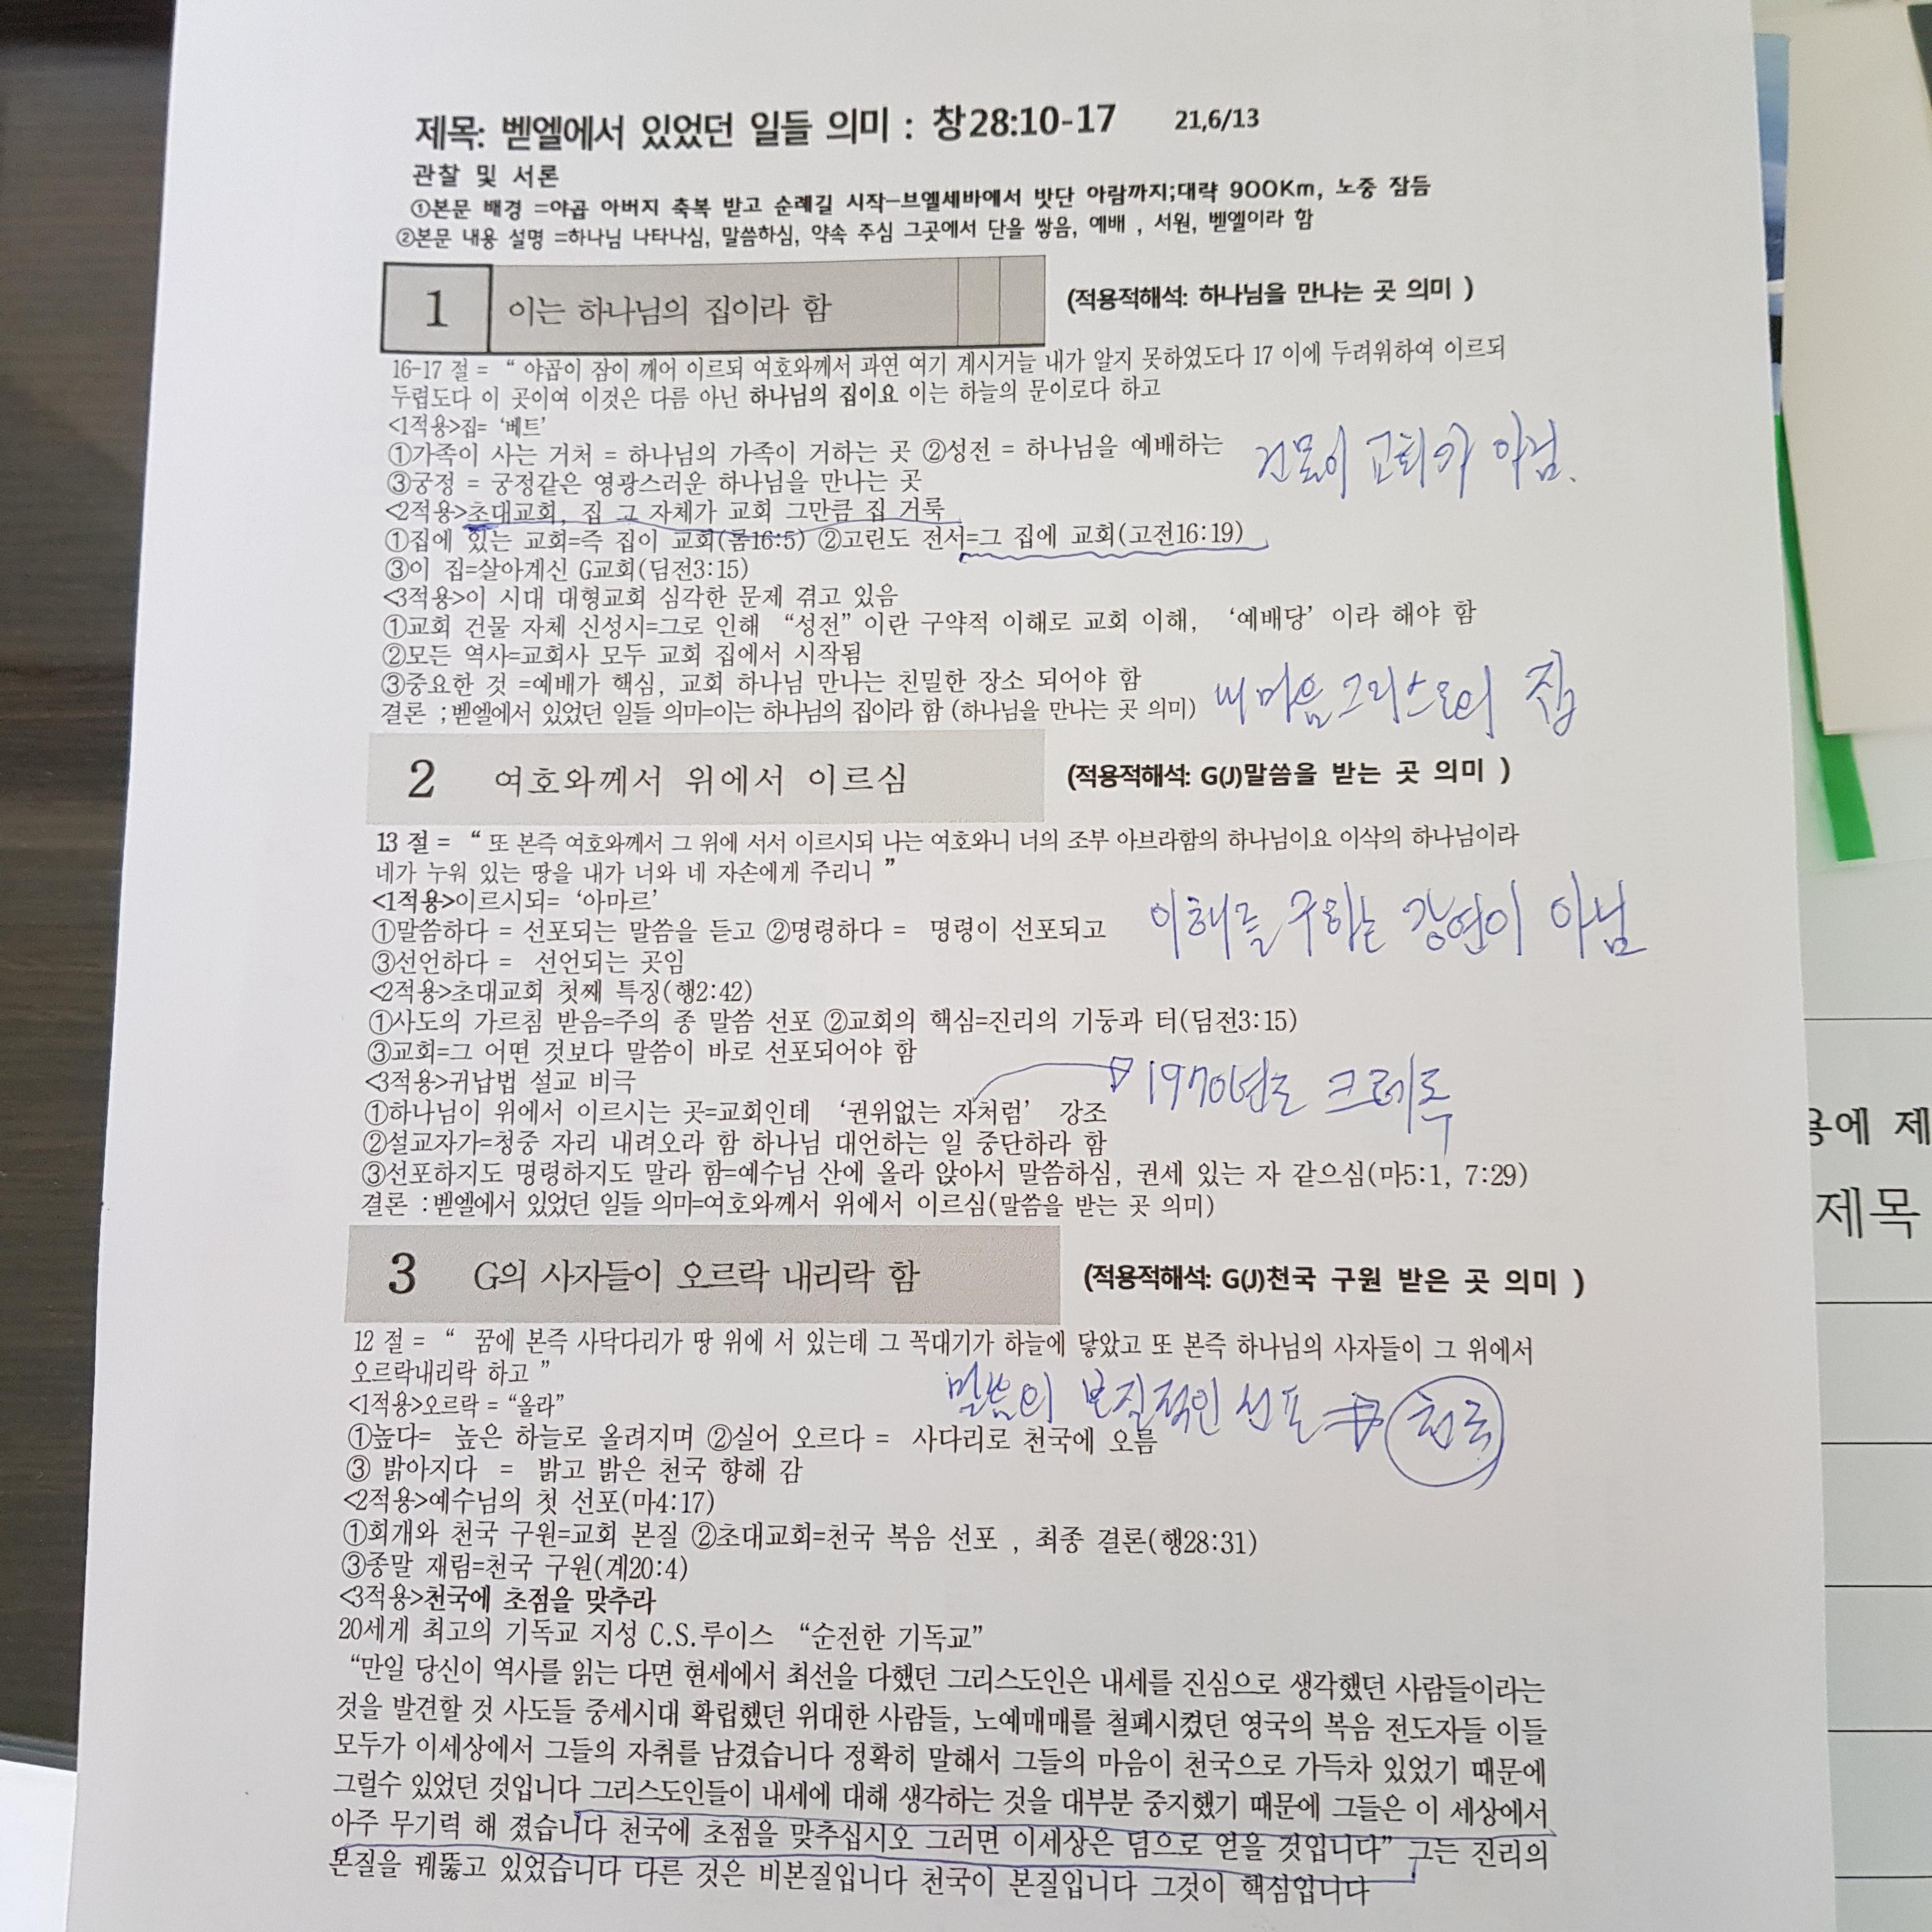 제목: 벧엘에서 있었던 일들 의미 : 창28:10-17 21,6/13
관찰 및 서론
①본문 배경 =야곱 아버지 축복 받고 순례길 시작-브엘세바에서 밧단 아람까지;대략 900Km, 노중 잠듬
②본문 내용 설명 =하나님 나타나심, 말씀하심, 약속 주심 그곳에서 단을 쌓음, 예배 , 서원, 벧엘이라 함
1 이는 하나님의 집이라 함 (적용적해석: 하나님을 만나는 곳 의미 )
16-17 절 = “ 야곱이 잠이 깨어 이르되 여호와께서 과연 여기 계시거늘 내가 알지 못하였도다 17 이에 두려워하여 이르되
두렵도다 이 곳이여 이것은 다름 아닌 하나님의 집이요 이는 하늘의 문이로다 하고
<1적용>집= ‘베트’
①가족이 사는 거처 = 하나님의 가족이 거하는 곳 ②성전 = 하나님을 예배하는
건물이 교회가 아님.
③궁정 = 궁정같은 영광스러운 하나님을 만나는 곳
<2적용>초대교회, 집 그 자체가 교회 그만큼 집 거룩
①집에 있는 교회=즉 집이 교회(롬16:5) ②고린도 전서=그 집에 교회(고전16:19)
③이 집=살아계신 G교회(딤전3:15)
<3적용>이 시대 대형교회 심각한 문제 겪고 있음
①교회 건물 자체 신성시=그로 인해 “성전” 이란 구약적 이해로 교회 이해, ‘예배당’ 이라 해야 함
②모든 역사=교회사 모두 교회 집에서 시작됨
③중요한 것 =예배가 핵심, 교회 하나님 만나는 친밀한 장소 되어야 함
내 마음 그리스도의 집
결론 ;벧엘에서 있었던 일들 의미=이는 하나님의 집이라 함 (하나님을 만나는 곳 의미)
2 여호와께서 위에서 이르심 (적용적해석: G(J)말씀을 받는 곳 의미 )
13 절 = “ 또 본즉 여호와께서 그 위에 서서 이르시되 나는 여호와니 너의 조부 아브라함의 하나님이요 이삭의 하나님이라
네가 누워 있는 땅을 내가 너와 네 자손에게 주리니 ”
<1적용>이르시되= ‘아마르’
①말씀하다 = 선포되는 말씀을 듣고 ②명령하다 = 명령이 선포되고
이해를 구하는 강연이 아님
③선언하다 = 선언되는 곳임
<2적용>초대교회 첫째 특징(행2:42)
①사도의 가르침 받음=주의 종 말씀 선포 ②교회의 핵심=진리의 기둥과 터(딤전3:15)
③교회=그 어떤 것보다 말씀이 바로 선포되어야 함
<3적용>귀납법 설교 비극
1970년도 크레독
①하나님이 위에서 이르시는 곳=교회인데 ‘권위없는 자처럼’ 강조
②설교자가=청중 자리 내려오라 함 하나님 대언하는 일 중단하라 함
③선포하지도 명령하지도 말라 함=예수님 산에 올라 앉아서 말씀하심, 권세 있는 자 같으심(마5:1, 7:29)
결론 :벧엘에서 있었던 일들 의미=여호와께서 위에서 이르심(말씀을 받는 곳 의미)
3 G의 사자들이 오르락 내리락 함 (적용적해석: G(J)천국 구원 받은 곳 의미 )
12 절 = “ 꿈에 본즉 사닥다리가 땅 위에 서 있는데 그 꼭대기가 하늘에 닿았고 또 본즉 하나님의 사자들이 그 위에서
오르락내리락 하고 ”
말씀의 본질적인 선포 ⇒ 천국
<1적용>오르락 = “올라”
①높다= 높은 하늘로 올려지며 ②실어 오르다 = 사다리로 천국에 오름
③ 밝아지다 = 밝고 밝은 천국 향해 감
<2적용>예수님의 첫 선포(마4:17)
①회개와 천국 구원=교회 본질 ②초대교회=천국 복음 선포 , 최종 결론(행28:31)
③종말 재림=천국 구원(계20:4)
<3적용>천국에 초점을 맞추라
20세게 최고의 기독교 지성 C.S.루이스 “순전한 기독교”
“만일 당신이 역사를 읽는 다면 현세에서 최선을 다했던 그리스도인은 내세를 진심으로 생각했던 사람들이라는
것을 발견할 것 사도들 중세시대 확립했던 위대한 사람들, 노예매매를 철폐시켰던 영국의 복음 전도자들 이들
모두가 이세상에서 그들의 자취를 남겼습니다 정확히 말해서 그들의 마음이 천국으로 가득차 있었기 때문에
그럴수 있었던 것입니다 그리스도인들이 내세에 대해 생각하는 것을 대부분 중지했기 때문에 그들은 이 세상에서
아주 무기력 해 졌습니다 천국에 초점을 맞추십시오 그러면 이세상은 덤으로 얻을 것입니다” 그는 진리의
본질을 꿰뚫고 있었습니다 다른 것은 비본질입니다 천국이 본질입니다 그것이 핵심입니다
용에 제
제목